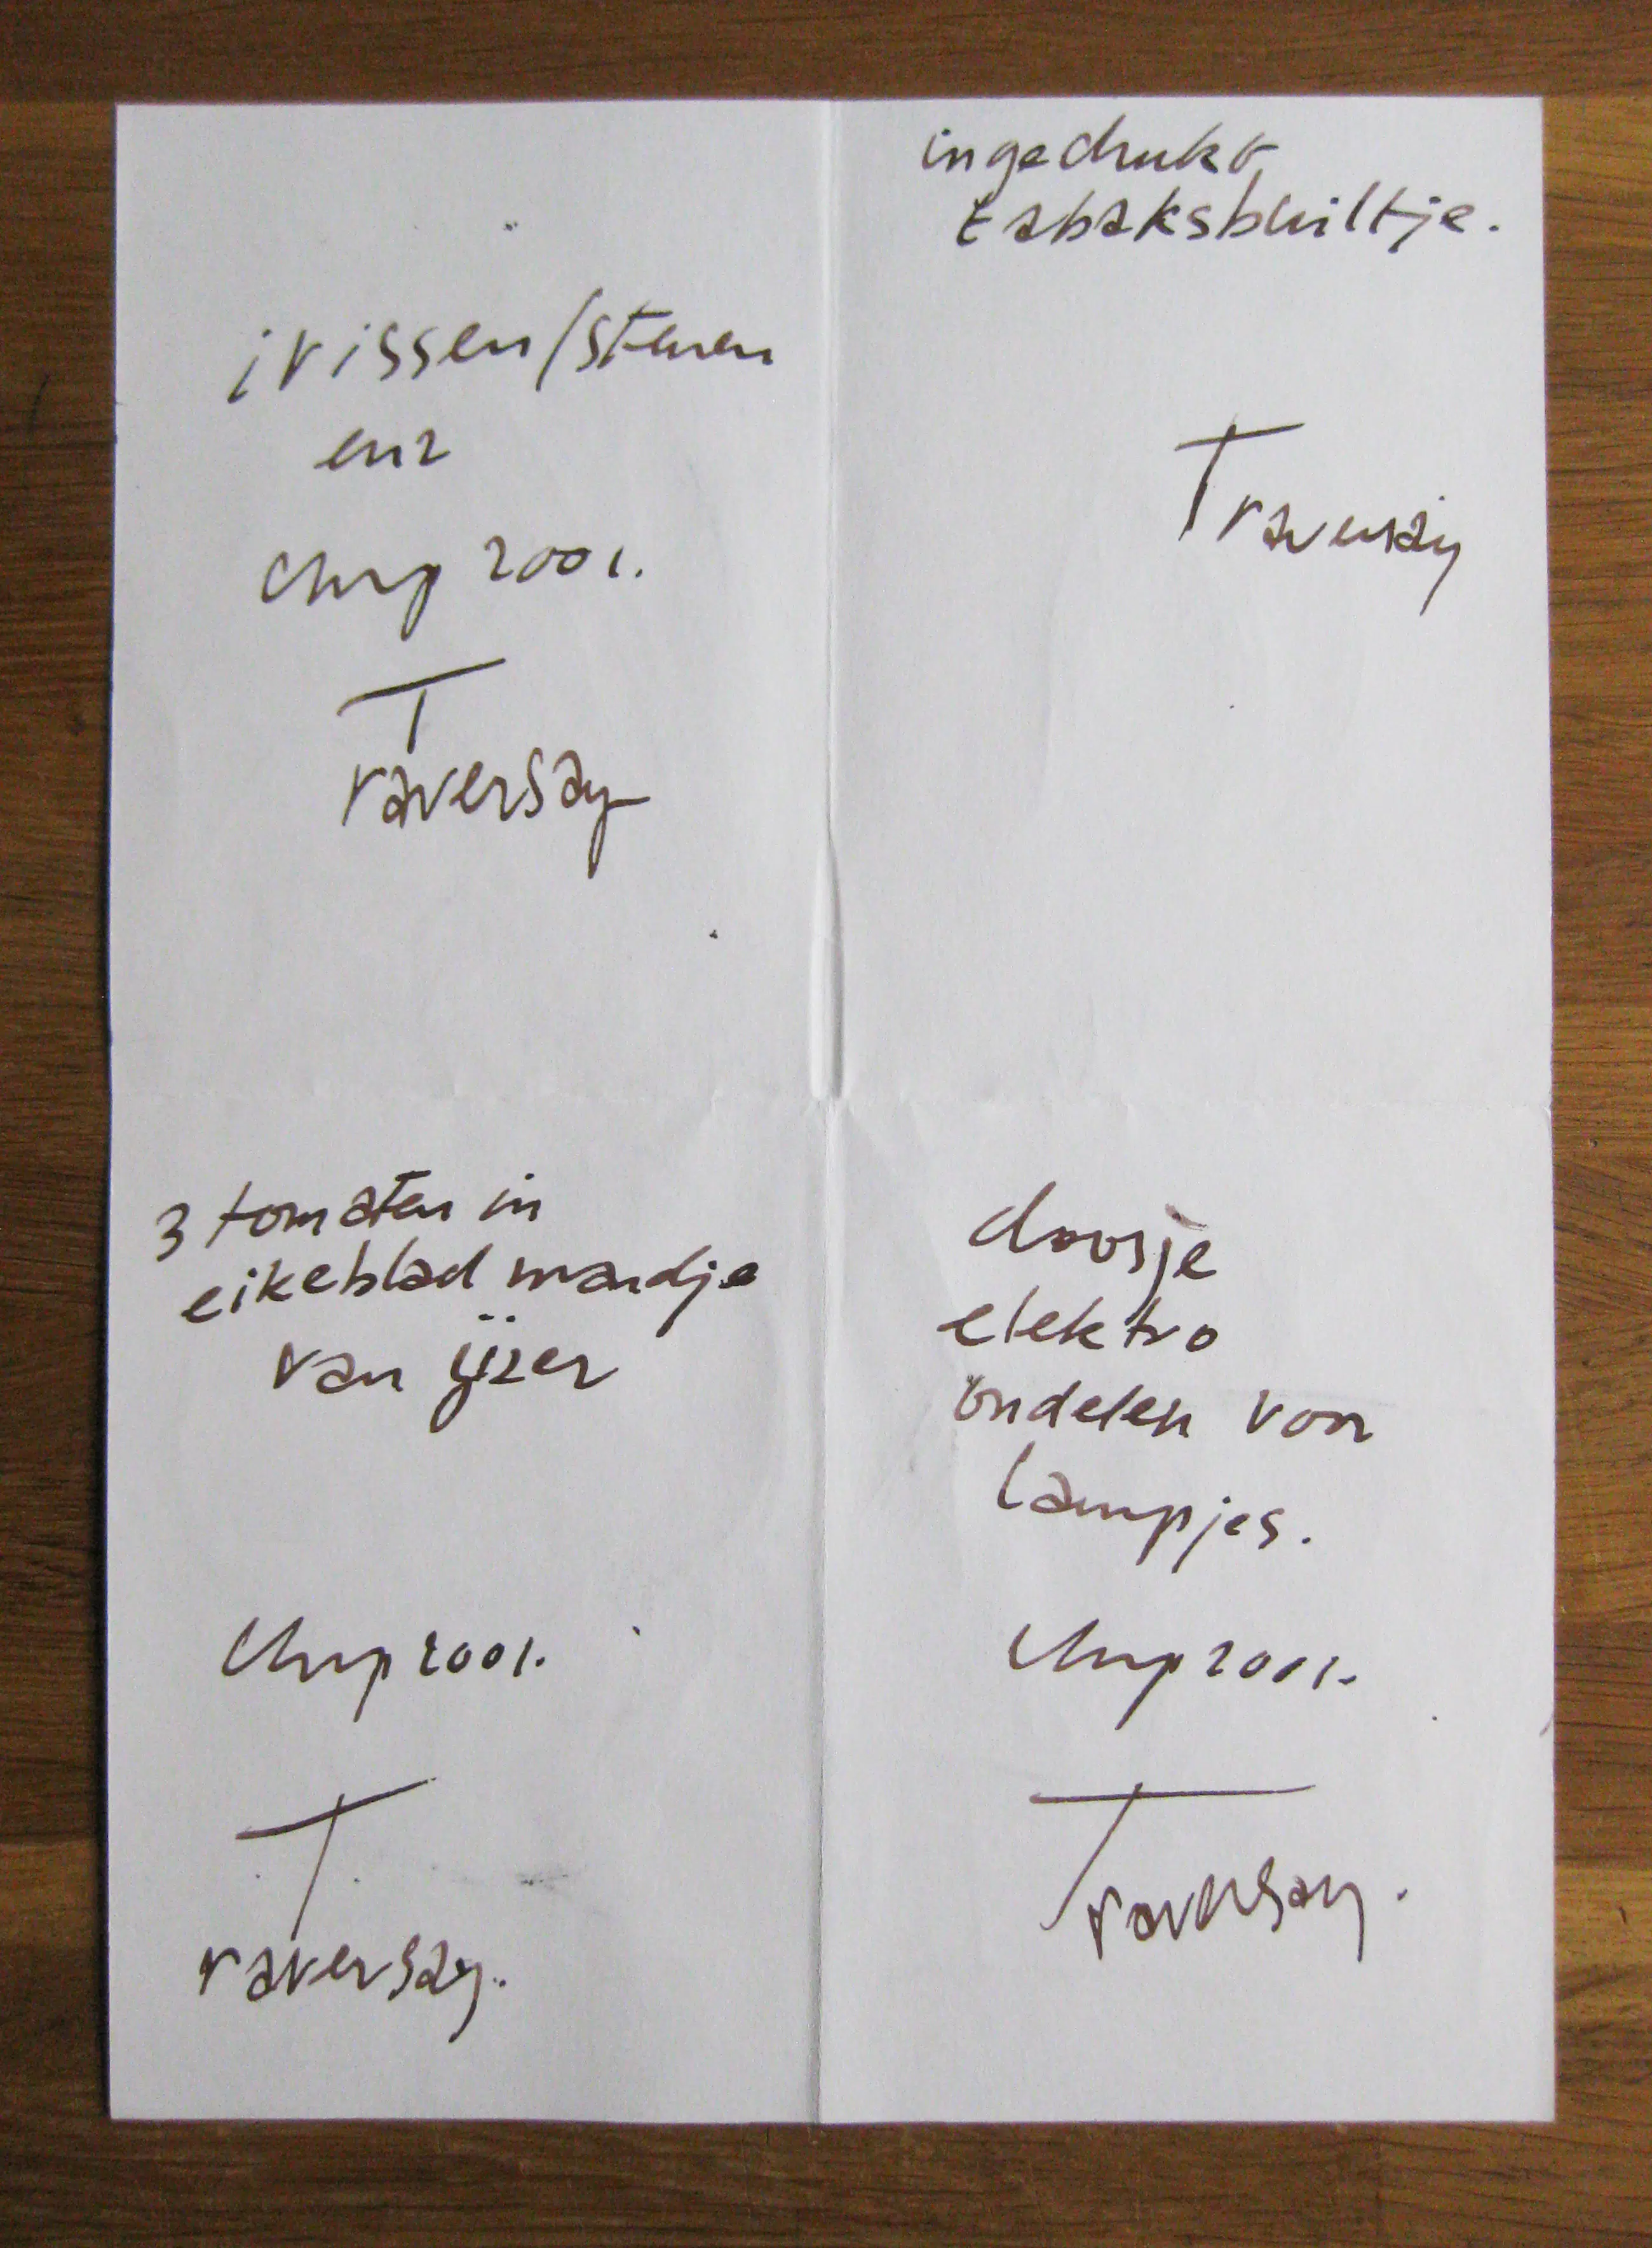 irissen/stenen
enz
Chrp 2001.
Traversay
ingedrukt
tabaksbuiltje.
Traversay
3 tomaten in
eikeblad mandje
van ijzer
Chrp 2001.
Traversay.
doosje
elektro
ondelen voor
lampjes.
Chrp 2001.
Traversay.